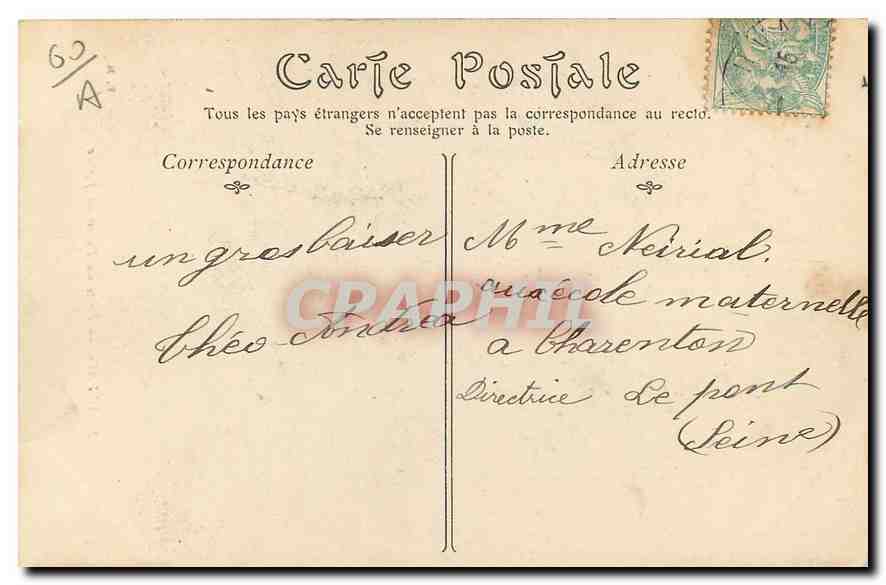 60/A
Carte Postale
Tous les pays étrangers n'acceptent pas la correspondance au recto.
Se renseigner à la poste.
Correspondance
un gros baiser
Théo Andréa
Adresse
Mme Neirial.
école maternelle
a Charenton
Directrice Le pont
(Seine)
CRAPHIL